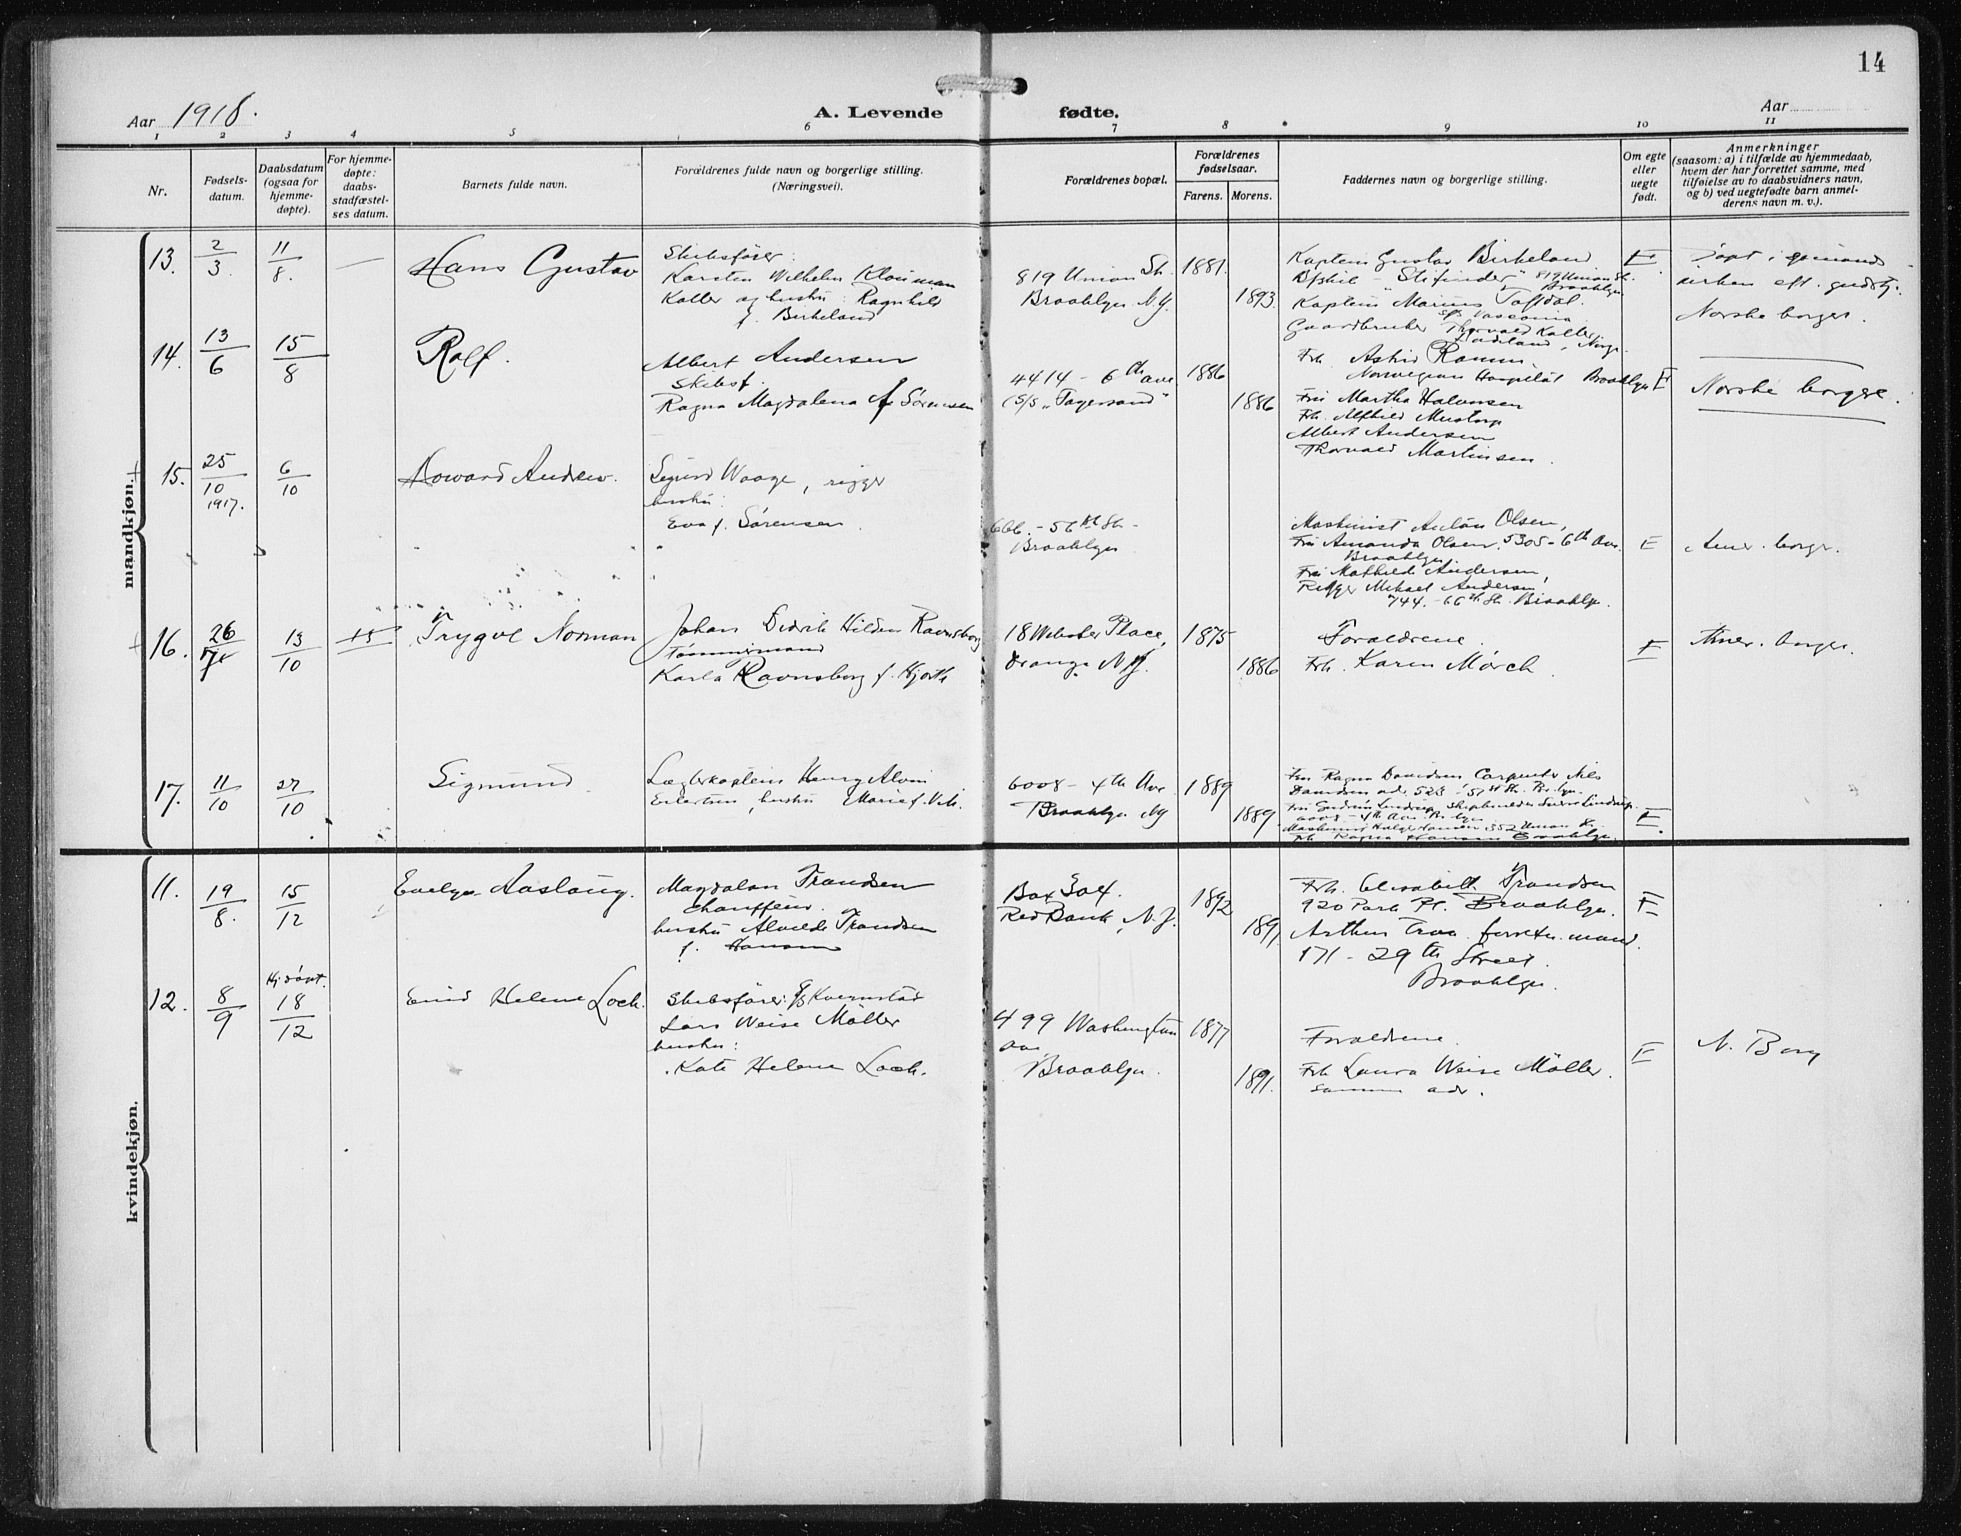 14
Aar 1918.
A. Levende fødte.
Aar
1 2 3 4 5 6 7 8 9 10 11
Nr.
Fødsels-
datum.
Daabsdatum
(ogsaa for
hjemme-
døpte).
For hjemme-
døpte:
daabs-
stadfæstel-
ses datum.
Barnets fulde navn.
Forældrenes fulde navn og borgerlige stilling.
(Næringsvei).
Forældrenes bopæl.
Forældrenes
fødselsaar.
Farens. Morens.
Faddernes navn og borgerlige stilling.
Om egte
eller
uegte
født.
Anmerkninger
(saasom: a) i tilfælde av hjemmedaab,
hvem der har forrettet samme, med
tilføielse av to daabsvidners navn,
og b) ved uegtefødte barn anmel-
derens navn m. v.).
mandkjøn.
13. 2/3. 11/8. — Hans Gustav
Skibsfører:
Karsten Wilhelm
Koller og hustru: Ragnhild
f. Birkeland
819 Union St.
Brooklyn N.Y.
1881.
1893
Kaptein Gustav Birkeland
"Stifinder" 819 Union St.
Brooklyn
Kaptein Marius Tofdal.
Gaardbruker Thorvald Koller
E
Døpt i
kirken eft. gudstj.
Norske borger.
14. 13/6 15/8 Rolf.
Albert Andersen
Skibsf.
Ragna Magdalena f. Sørensen
4414 - 6th ave
(S/S "
1886
1886
Frk. Astrid
Norwegian Hospital Brooklyn
Fru Martha Halvorsen
Frk. Alfhild
Albert Andersen
Thorvald Martinsen.
E
Norske borgere.
15. 25/10 1917. 6/10 Howard Andrew.
Sigurd Waage, rigger
hustru:
Eva f. Sørensen
666. - 56th St. -
Brooklyn
Maskinist Anton Olsen,
Fru Amanda Olsen, 5305 - 6th Ave.
Brooklyn
Fru Mathilde Andersen,
Rigger Mikael Andersen
744. - 66th St. Brooklyn.
E
Amer. borger.
16. 26/7 13/10 Trygve Norman
Johan Didrik Hilden Ravnsborg
Tømmermand
Karla Ravnsborg f. Hjorth
18 Webster Place,
Orange N.J.
1875
1886
Forældrene.
Frk. Karen Mørch.
E
Amer. borger.
17. 11/10 27/10 Sigmund
Lægterkaptein Henry Alvin
Eilertsen, hustru Marie f.
6008 - 4th Ave
Brooklyn NY
1889
1889.
Fru Ragna Davidsen Carpenter Nils
Davidsen adr. 528 - 51st St. Br.lyn.
Fru Gudrun Lindrup,
6008 - 4th Ave. Br.lyn
Maskinist Holger Hansen 352 Union St.
Frk. Ragna Hansen Brooklyn.
E.
kvindekjøn.
11. 19/8. 15/12 Evelyn Aaslaug.
Magdalon Trondsen
chauffeur.
hustru Alvilde Trondsen
f. Hansen
Box 304.
Red Bank, N.J.
1892
1891.
Frk. Elisabeth Trondsen
920 Park Pl. Brooklyn.
Arthur
171 - 29th Street.
Brooklyn.
E
12. 8/9 Hj.døpt. 18/12 Enid Helene Loch.
Skibsfører: S/S Kvernstad
Lars Weise Möller
hustru:
Kate Helene Loch.
499 Washington
ave
Brooklyn.
1877
1891.
Forældrene.
Frk Laura Weise Möller.
samme adr.
E
N. Borg